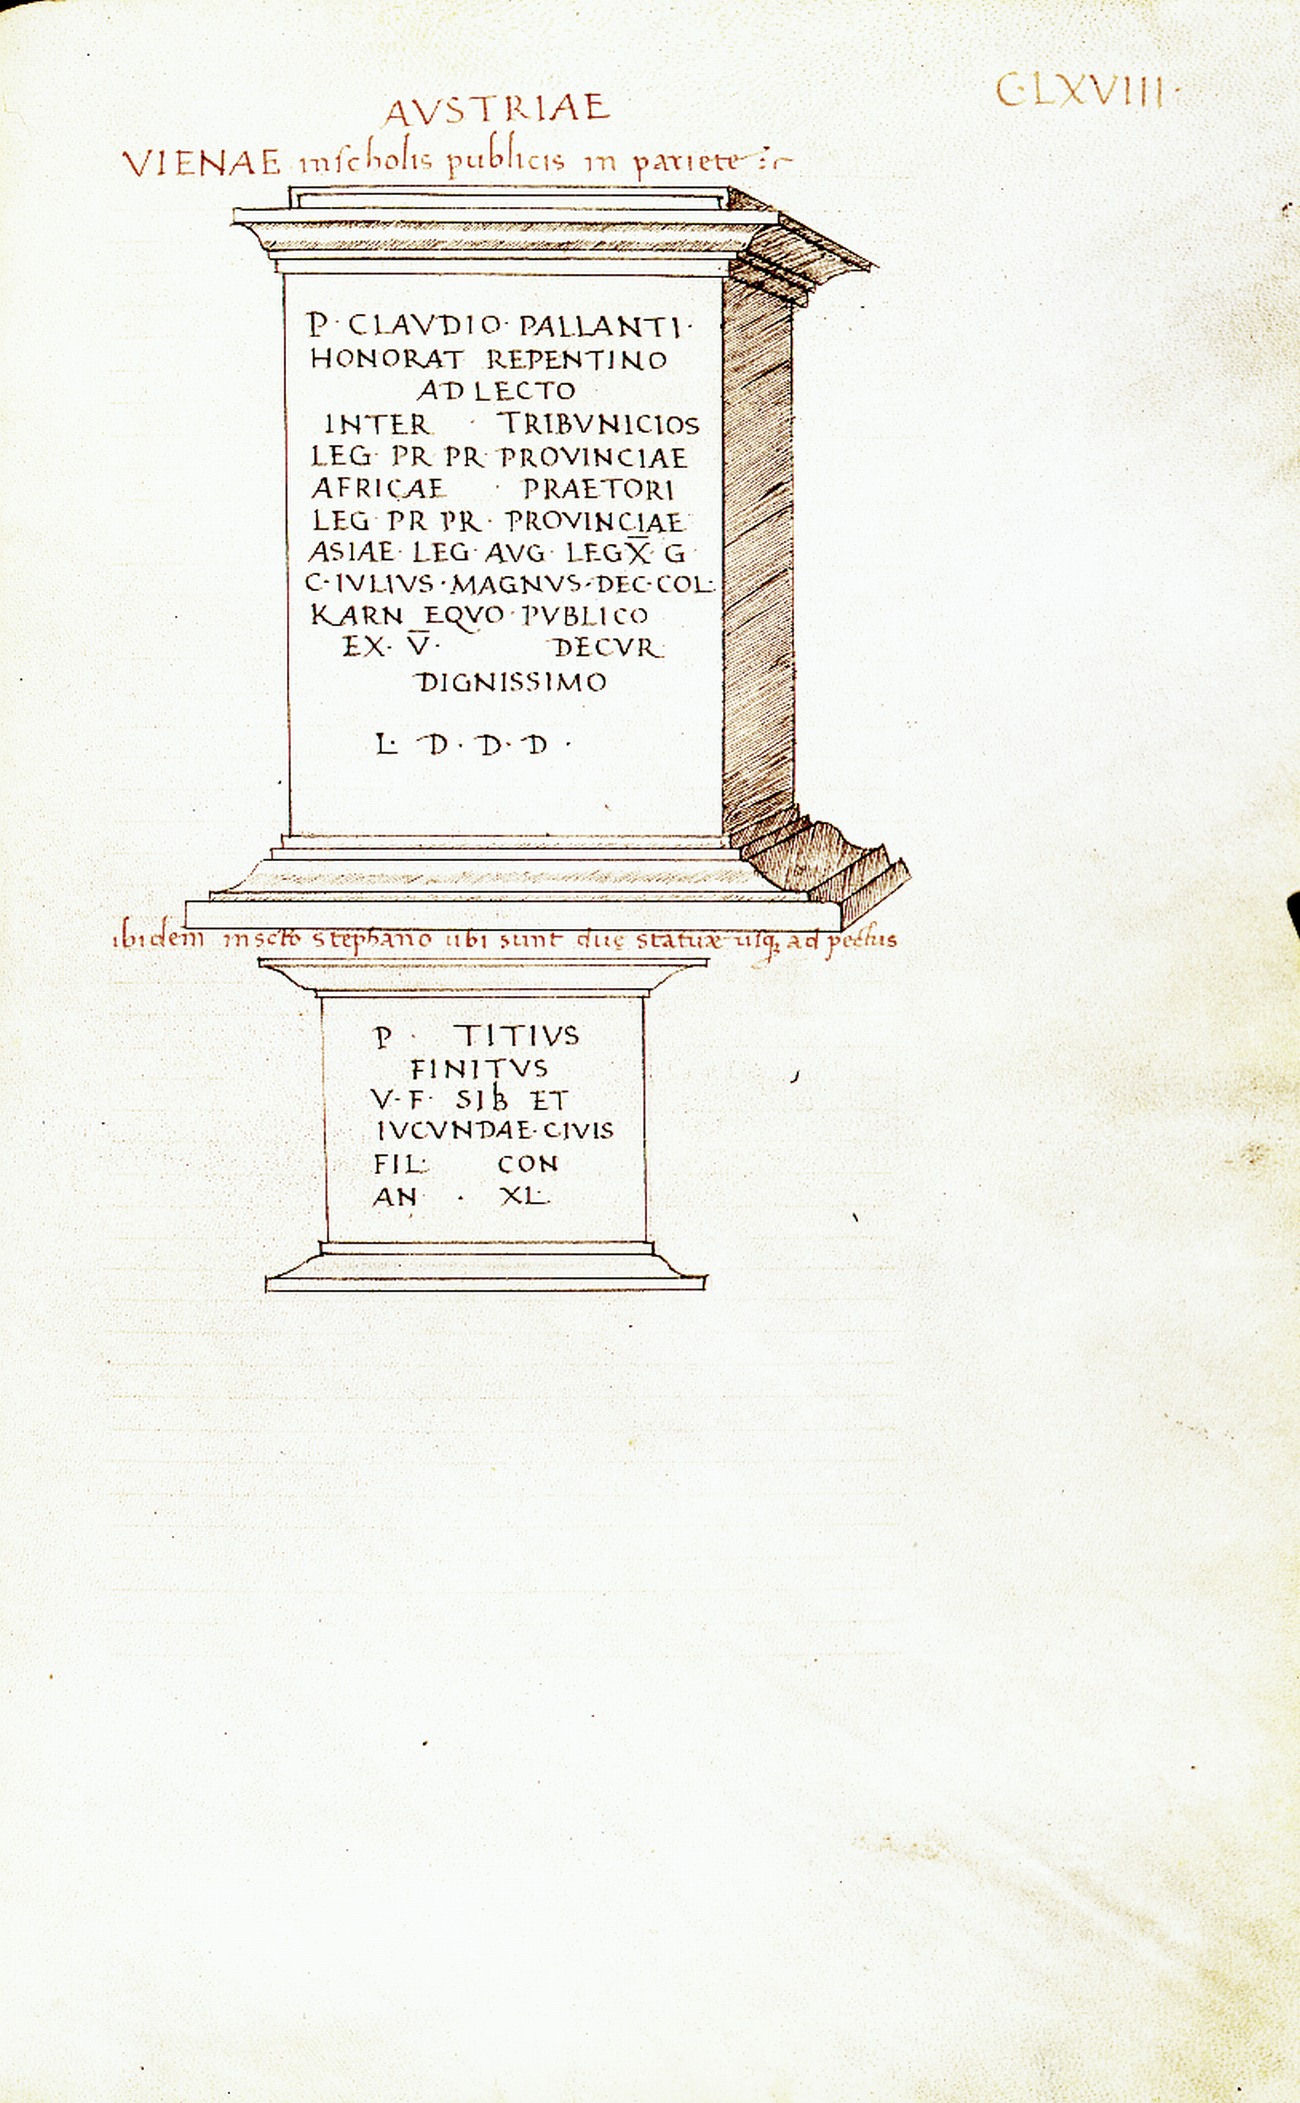 C·LXVIII·
AVSTRIAE
VIENAE inscholis publicis in pariete
P· CLAVDIO· PALLANTI·
HONORAT REPENTINO
AD LECTO
INTER · TRIBVNICIOS
LEG· PR PR· PROVINCIAE
AFRICAE · PRAETORI
LEG PR PR· PROVINCIAE
ASIAE· LEG· AVG· LEG X̅ G
C·IVLIVS·MAGNVS·DEC·COL·
KARN EQVO·PVBLICO
EX· V̅· DECVR
DIGNISSIMO
L· D· D· D·
ibidem in scto stephano ubi sunt duę statuæ usq; ad pectus
P· TITIVS
FINITVS
V·F· SIB ET
IVCVNDAE·CIVIS
FIL· CON
AN · XL·